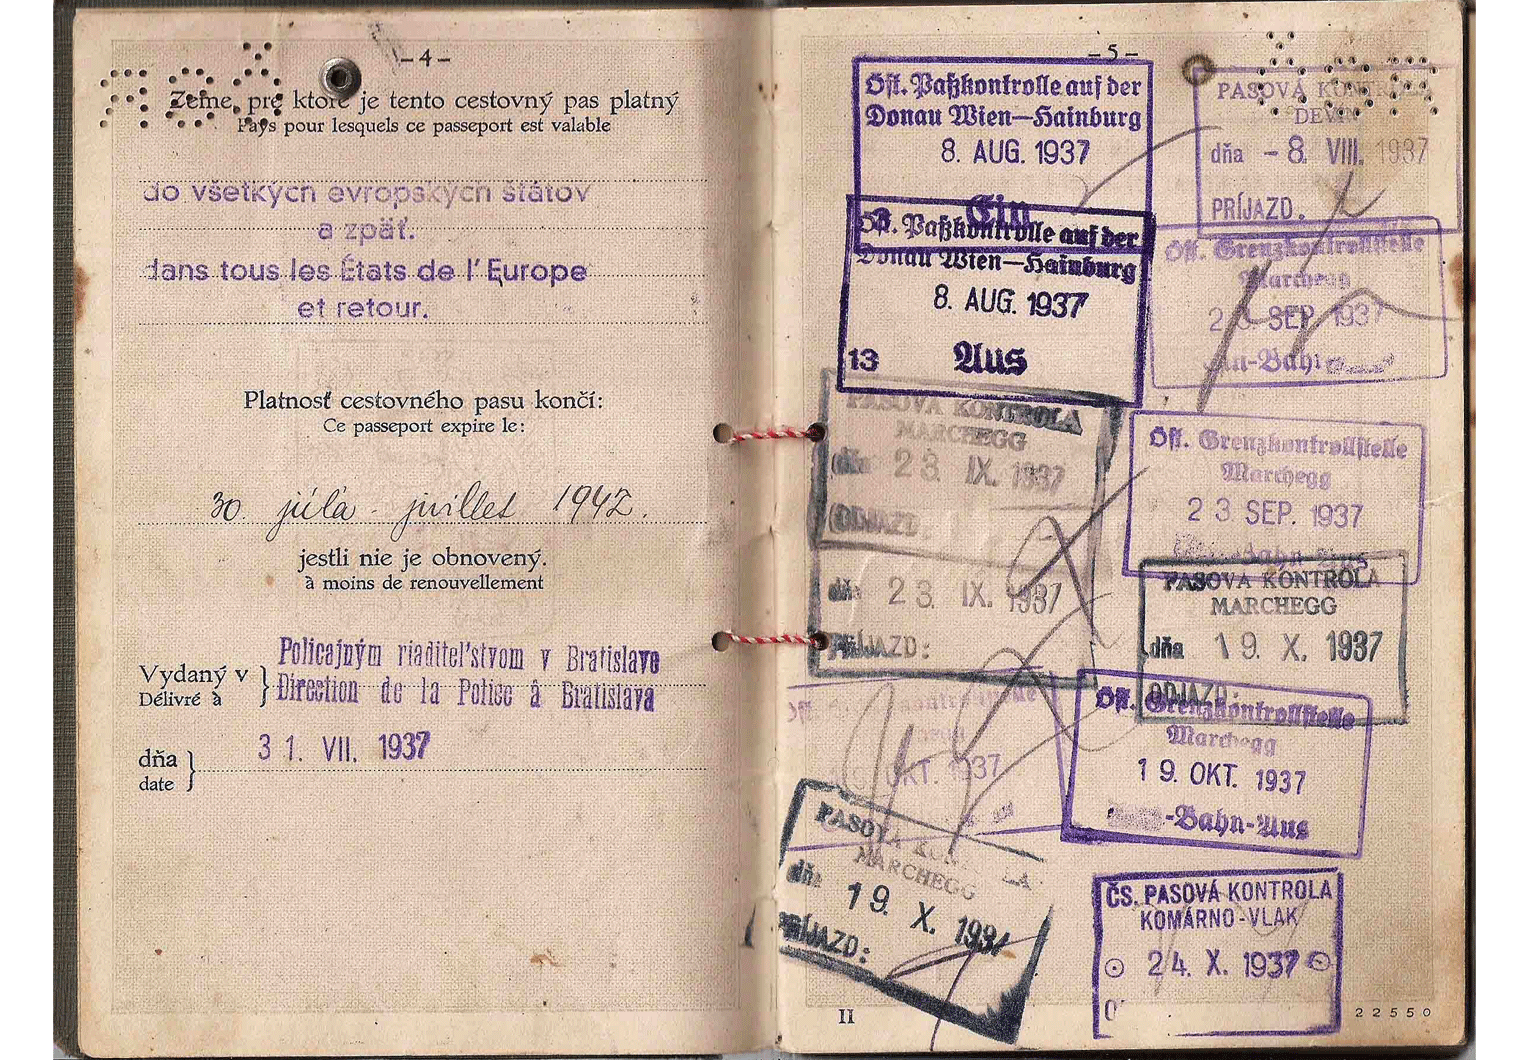 – 4 –
Zeme, pre ktoré je tento cestovný pas platný
Pays pour lesquels ce passeport est valable
do všetkých evropských štátov
a zpäť.
dans tous les États de l' Europe
et retour.
Platnosť cestovného pasu končí:
Ce passeport expire le:
30. júla - juillet 1942.
jestli nie je obnovený.
à moins de renouvellement
Vydaný v
Délivré à
Policajným riaditeľstvom v Bratislave
Direction de la Police à Bratislava
dňa
date
31. VII. 1937
– 5 –
Öst. Paßkontrolle auf der
Donau Wien—Hainburg
8. AUG. 1937
Ein
Öst. Paßkontrolle auf der
Donau Wien—Hainburg
8. AUG. 1937
13 Aus
PASOVÁ KONTROLA
DEVÍN
dňa - 8. VIII. 1937
PRÍJAZD.
Öst. Grenzkontrollstelle
Marchegg
23 SEP 1937
PASOVÁ KONTROLA
MARCHEGG
dňa 23. IX. 1937
ODJAZD:
dňa 23. IX. 1937
PRÍJAZD:
Öst. Grenzkontrollstelle
Marchegg
23. SEP. 1937
Bahn-Aus
PASOVÁ KONTROLA
MARCHEGG
dňa 19. X. 1937
ODJAZD:
OKT. 1937
Öst. Grenzkontrollstelle
Marchegg
19. OKT. 1937
-Bahn-Aus
PASOVÁ KONTROLA
MARCHEGG
dňa 19. X. 1937
PRÍJAZD:
ČS. PASOVÁ KONTROLA
KOMÁRNO-VLAK
24. X. 1937
II
22550